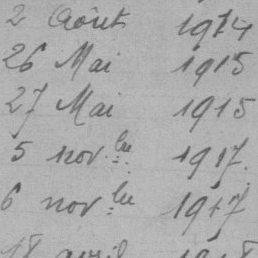 2 Août 1914
26 Mai 1915
27 Mai 1915
5 nov.bre 1917.
6 nov.bre 1917
18 avril 1918